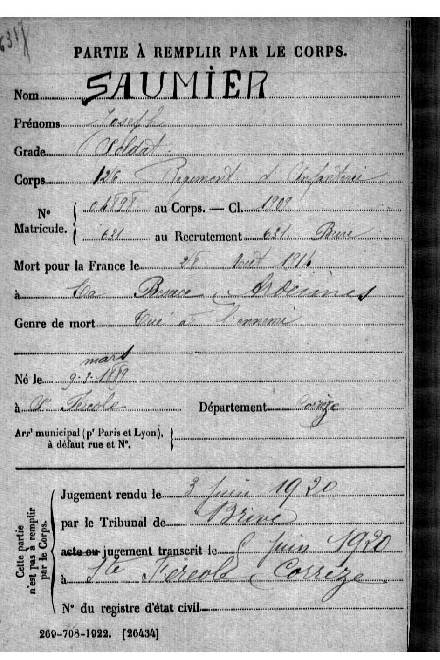 PARTIE À REMPLIR PAR LE CORPS.
Nom SAUMIER
Prénoms Joseph
Grade Soldat
Corps 126 Regiment d'Infanterie
N° Matricule. 04898 au Corps. — Cl. 1909
621 au Recrutement 621 Brive
Mort pour la France le 28 Août 1914
à La Besace Ardennes
Genre de mort Tué à l'ennemi
mars
Né le 9-3-1889
à St Fereole Département Corrèze
Arrt municipal (pr Paris et Lyon), à défaut rue et N°.
Cette partie n'est pas à remplir par le Corps.
Jugement rendu le 3 juin 1920
par le Tribunal de Brive
acte ou jugement transcrit le juin 1920
à Ste Fereole Corrèze
N° du registre d'état civil
269-708-1922. [26434]